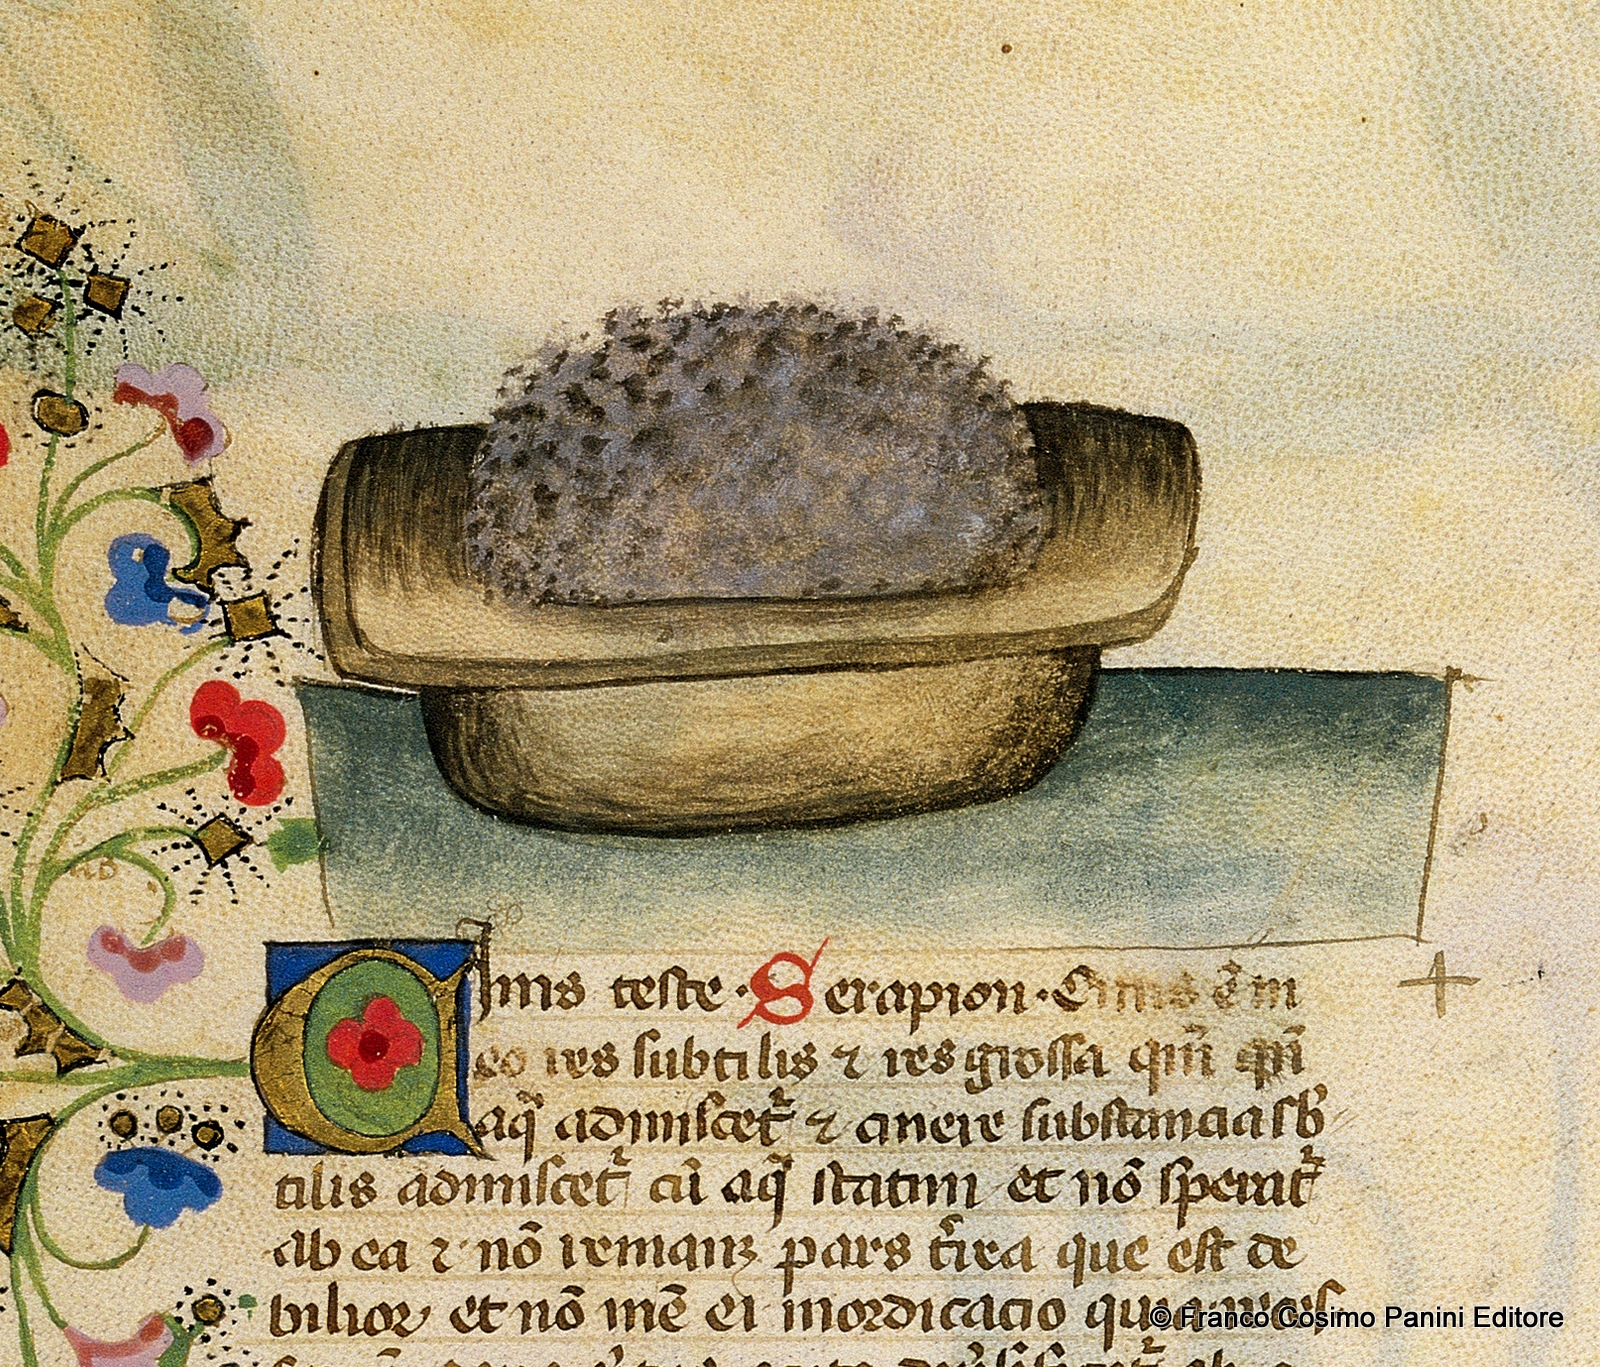 Cinis teste · Serapion · Cinis ē in
eo res subtilis ⁊ res grossa qm̄
aq̄ admiscet᷑ ⁊ cinere substancia sb
tilis admiscet᷑ cū aq̄ statim et nō sperat᷑
ab ea ⁊ nō remanz pars t̄rea que est de
bilior et nō inē ei mordicacio quia
© Franco Cosimo Panini Editore